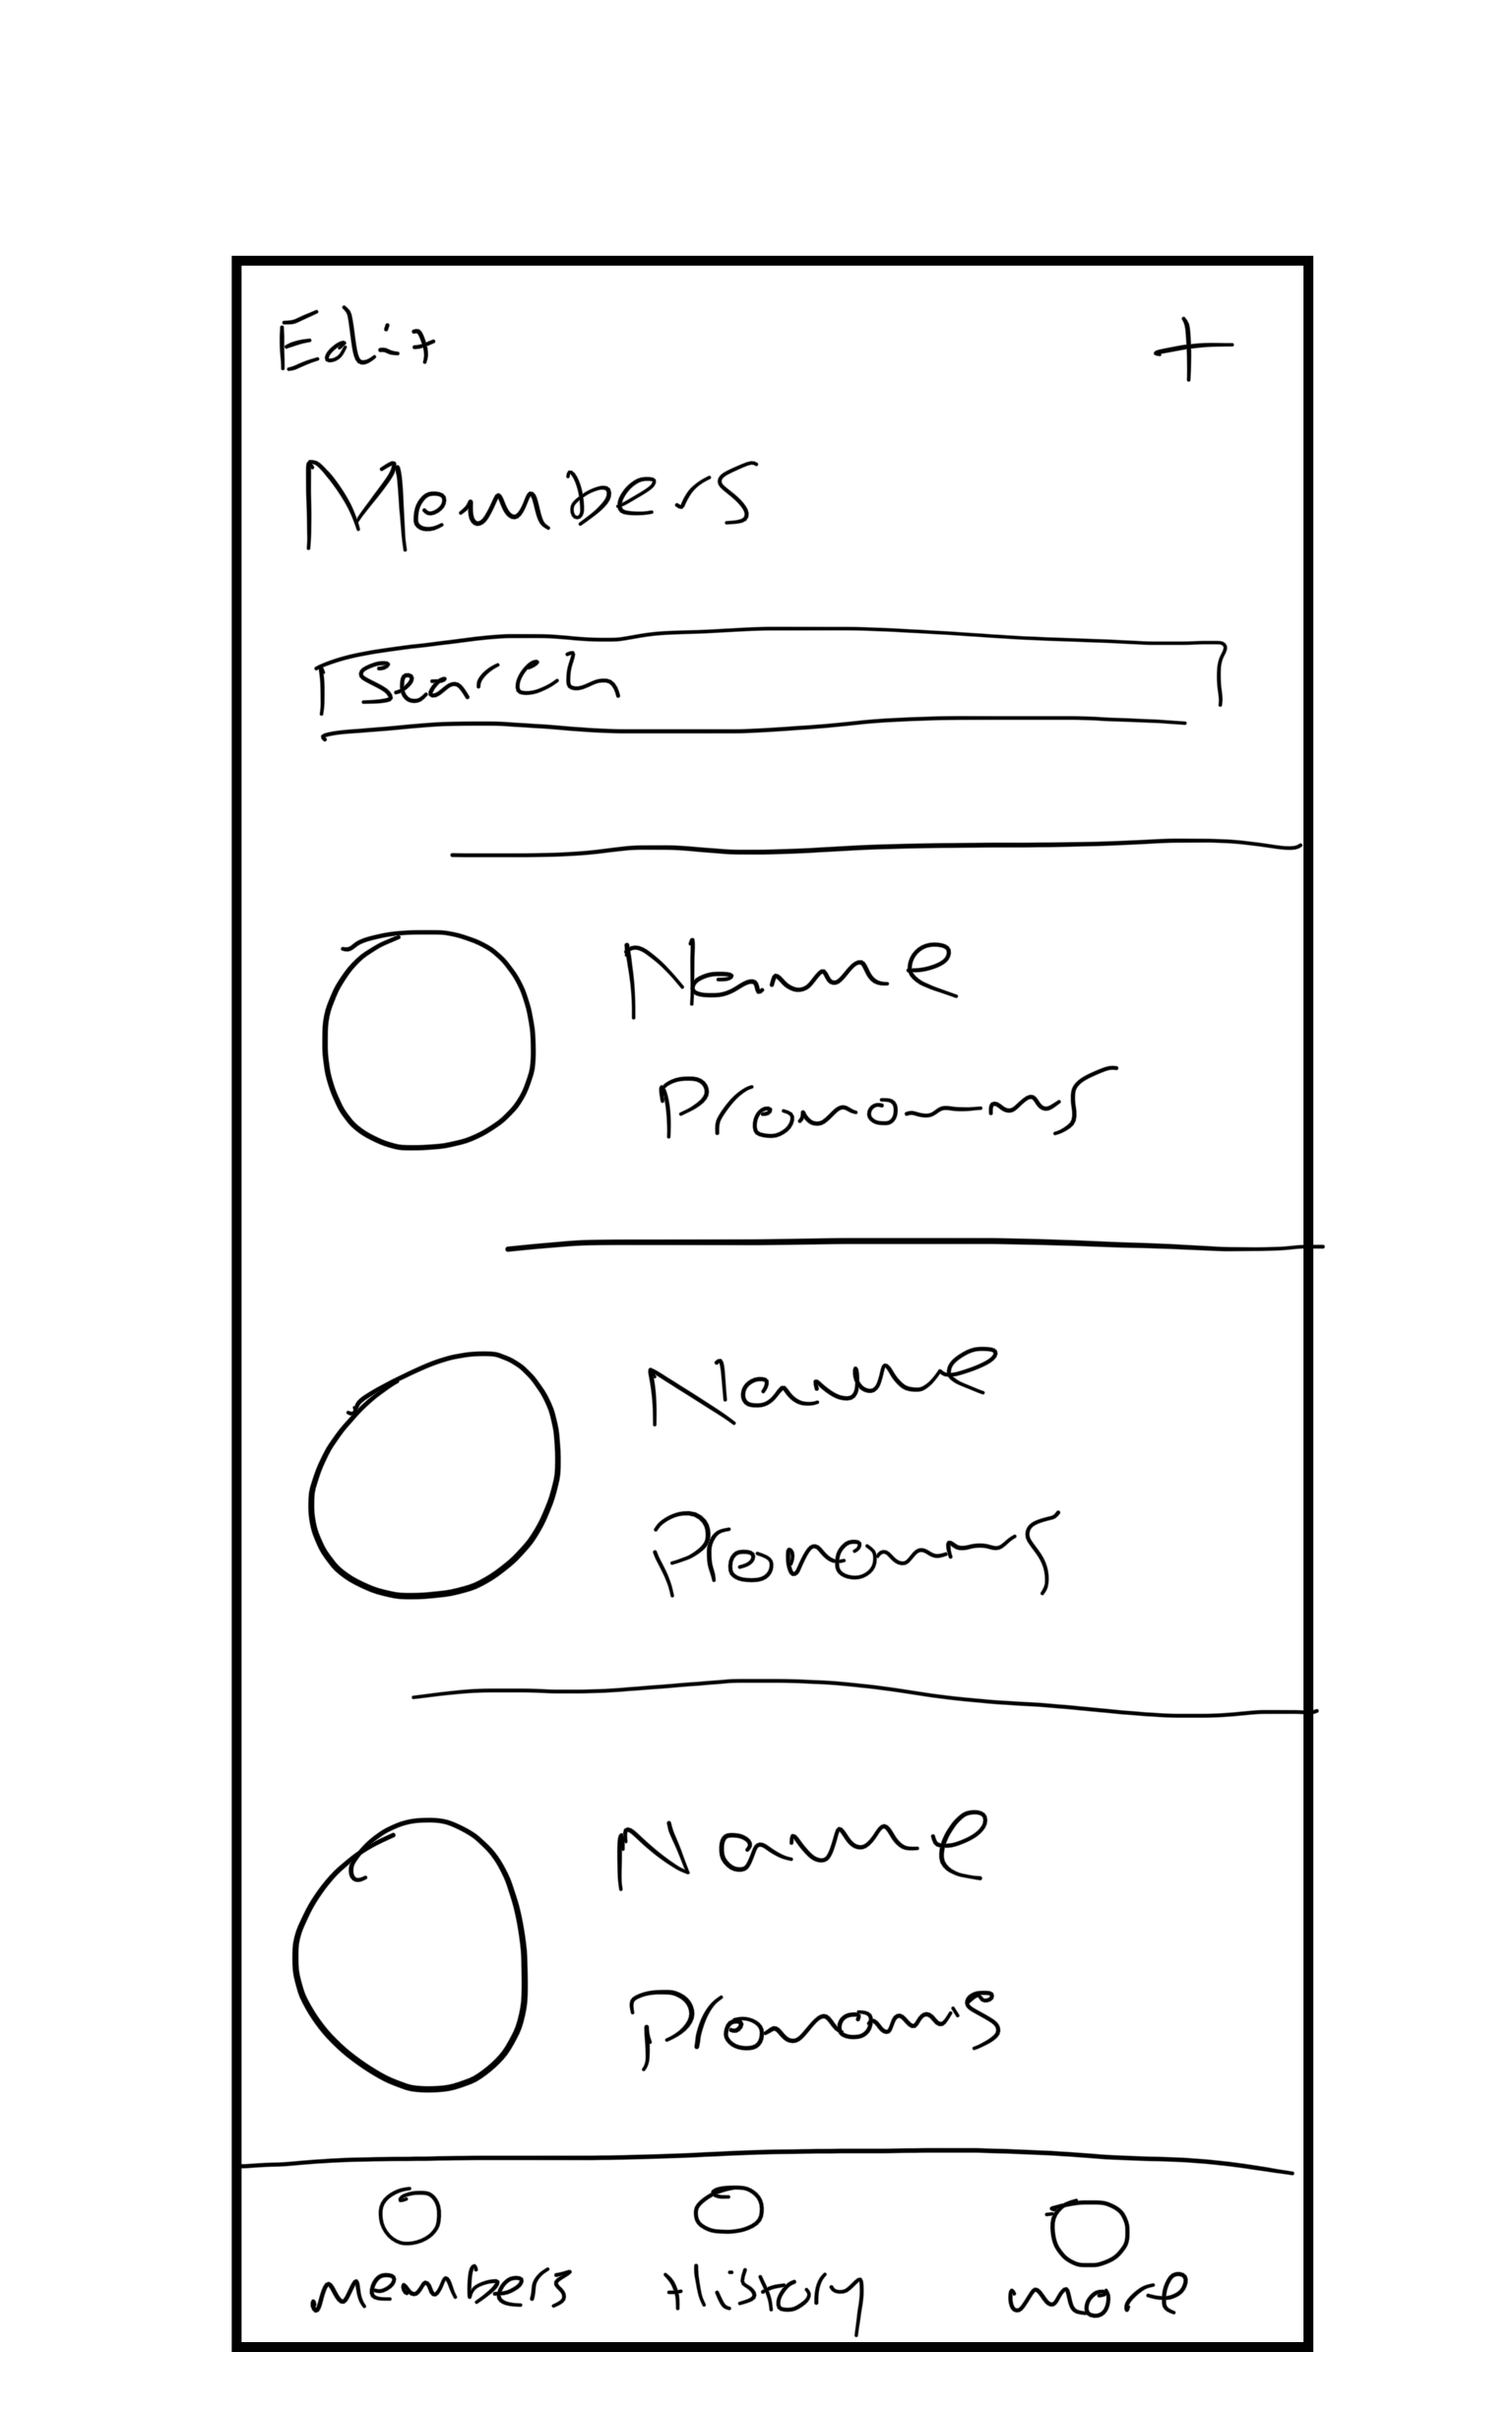 Edit +
Members
Search
Name
Pronouns
Name
Pronouns
Name
Pronouns
members History more